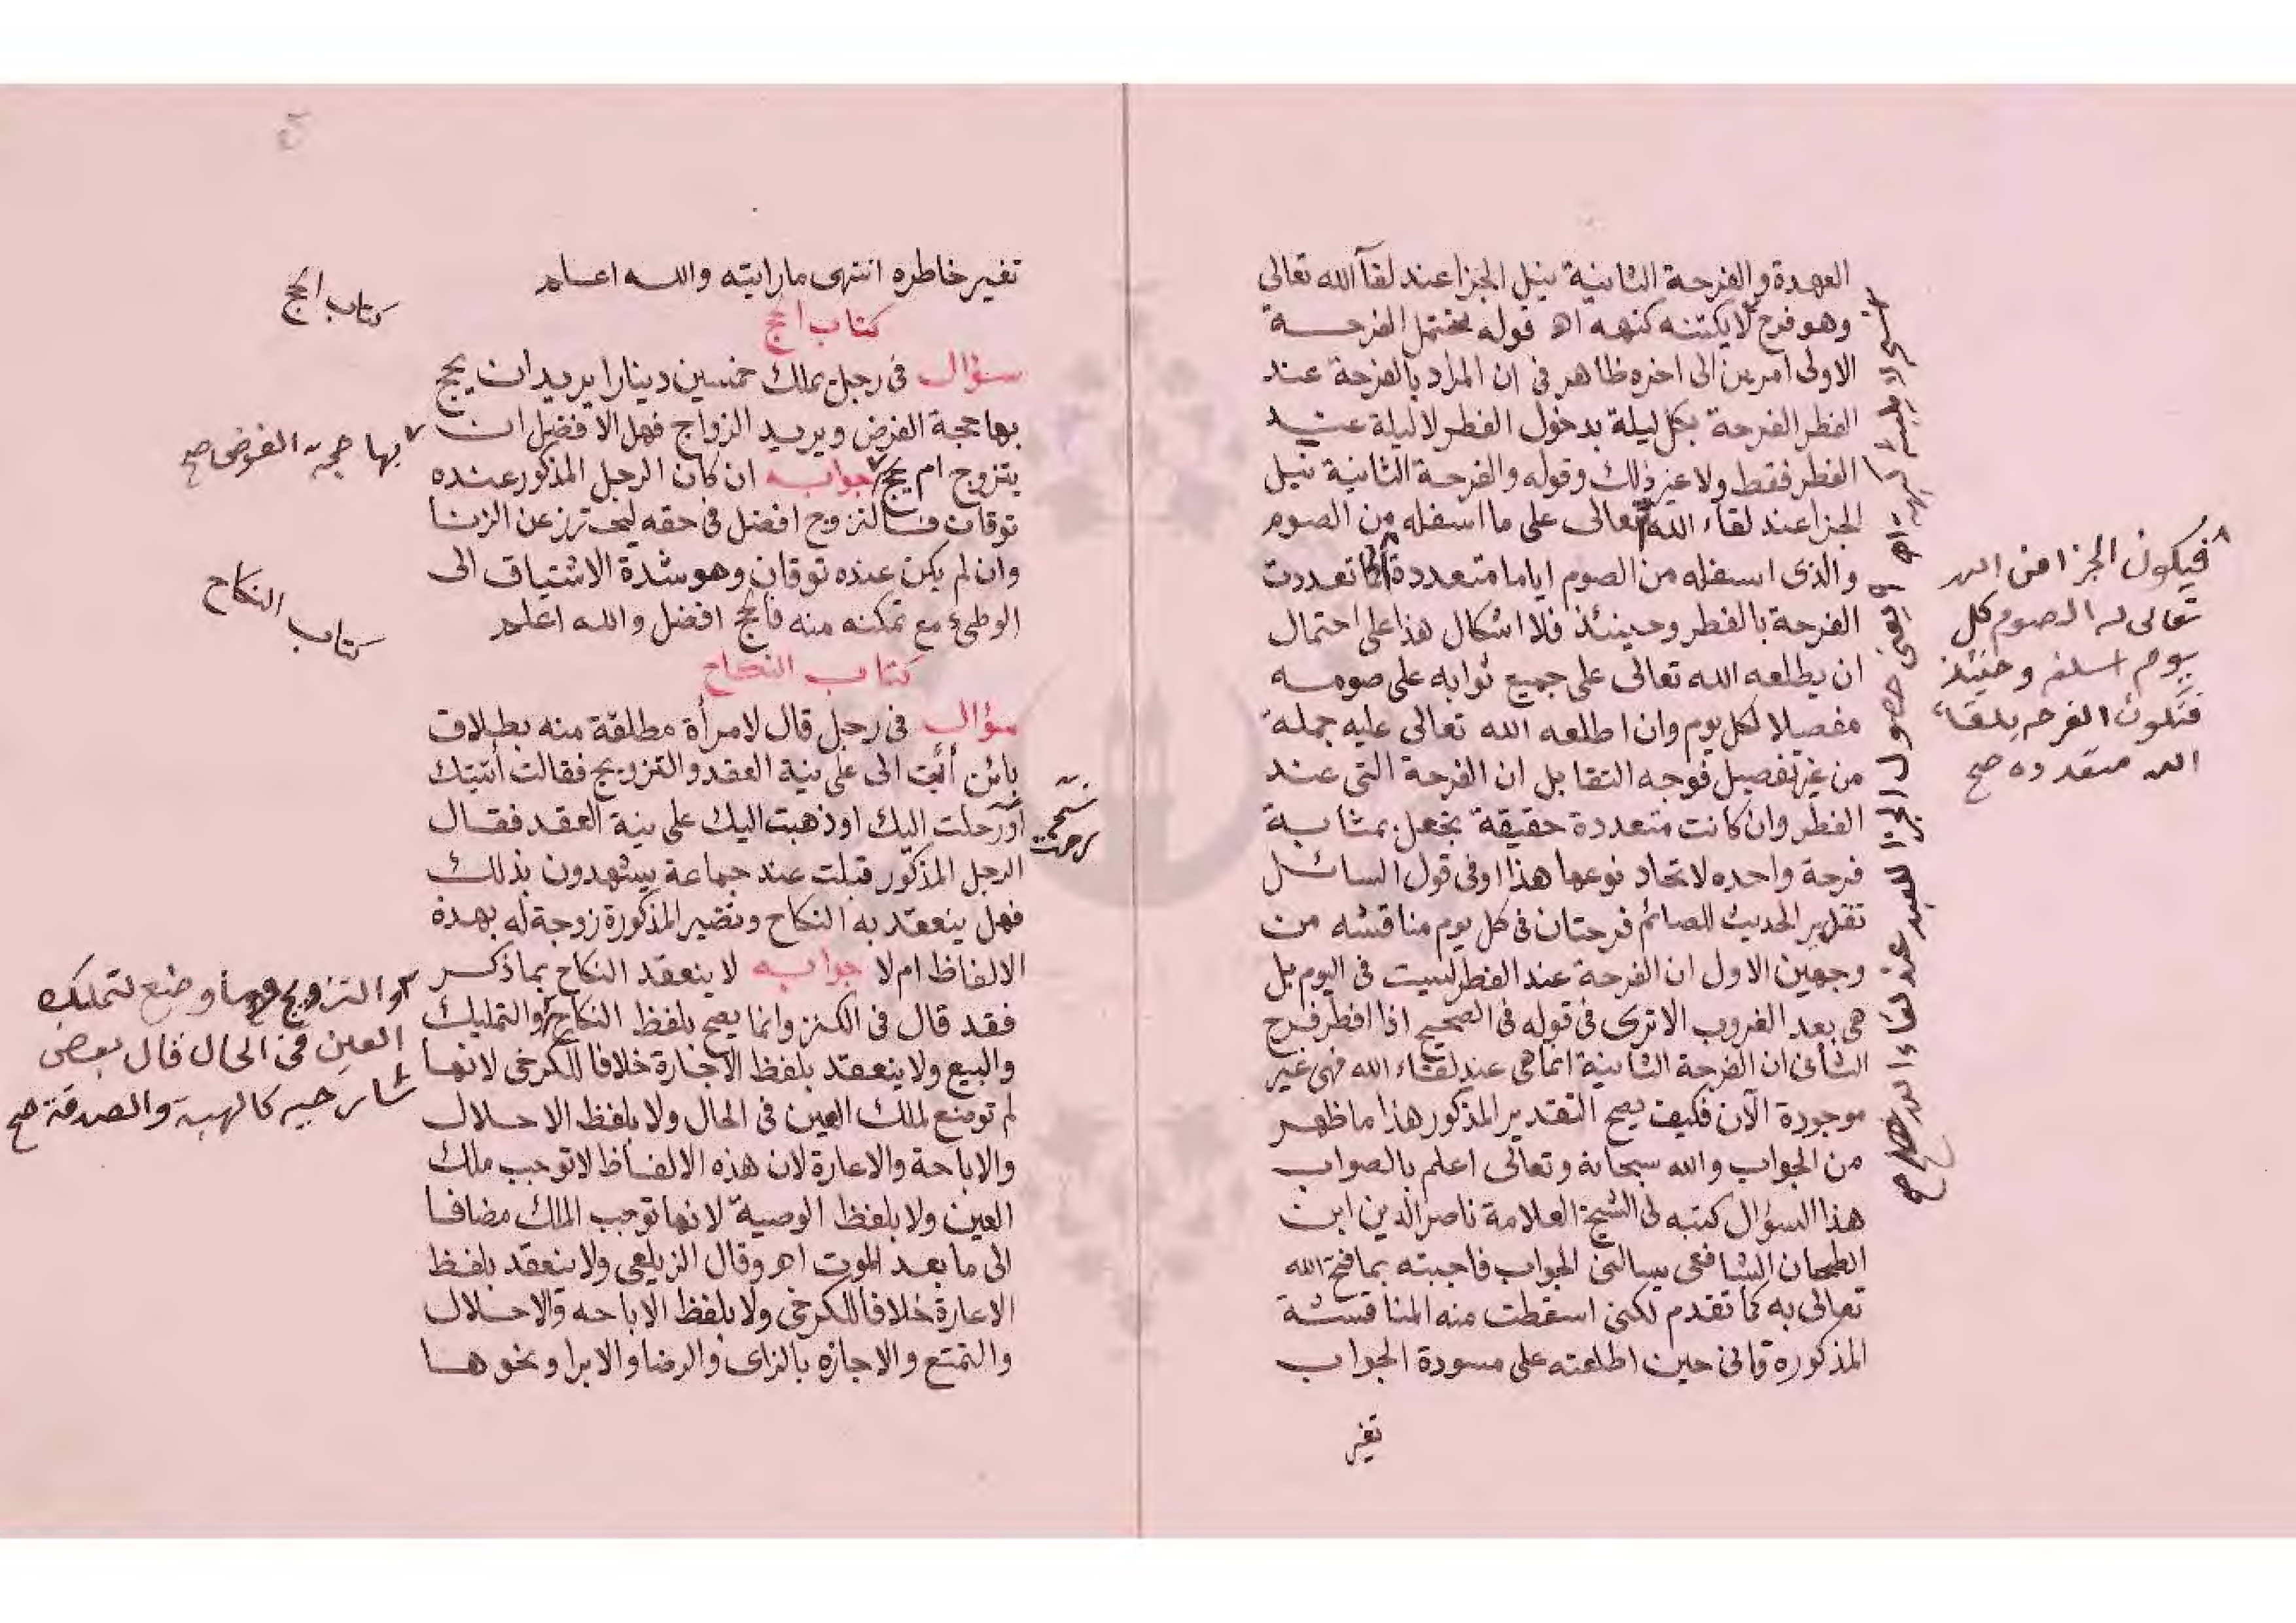 العهدة والفرحة الثانية بنيل الجزا عند لقآ الله تعالى
وهو فرح لا يكتنه كنهه اه قوله يحتمل الفرحة
الاولى امرين الى اخره ظاهر فى ان المراد بالفرحة عند
الفطر الفرحة بكل ليلة بدخول الفطر لا ليلة عيد
الفطر فقط ولا غير ذلك وقوله والفرحة الثانية بنيل
الجزا عند لقاء الله تعالى على ما اسفله من الصوم
والذى اسفله من الصوم اياما متعددة كما تعددت
الفرحة بالفطر وحينئذ فلا اشكال هذا على احتمال
ان يطلعه الله تعالى على جميع ثوابه على صومه
مفصلا لكل يوم وان اطلعه الله تعالى عليه جملة
من غير تفصيل فوجه التقابل ان الفرحة التى عند
الفطر وان كانت متعددة حقيقة بجعل بمثابة
فرحة واحده لاتحاد نوعها هذا او فى قول السائل
تقدير الحديث للصائم فرحتان فى كل يوم مناقشه من
وجهين الاول ان الفرحة عند الفطر ليست فى اليوم بل
هى بعد الغروب الا ترى فى قوله فى الصحيح اذا افطر فرح
الثانى ان الفرحة الثانية انما هى عند لقاء الله فهى غير
موجودة الآن فكيف يصح التقدير المذكور هذا ما ظهر
من الجواب والله سبحانه وتعالى اعلم بالصواب
هذا السؤال كتبه لى الشيخ العلامة ناصر الدين ابن
الطحان الشافعى يسالنى الجواب فاجبته بما فتح الله
تعالى به كما تقدم لكنى اسقطت منه المناقشة
المذكورة فانى حين اطلعته على مسودة الجواب
تغير
فيكون الجزا من الله
تعالى له الصوم كل
يوم اسلفه وحينئذ
فتكون الفرحه بلقاء
الله متعدده صح
تغير خاطره انتهى ما رايته والله اعلم
كتاب الحج
سؤال فى رجل يملك خمسين دينارا يريد ان يحج
بها حجة الفرض ويريد الزواج فهل الافضل ان
يتزوج ام يحج جوابه ان كان الرجل المذكور عنده
توقان فالتزوج افضل فى حقه ليحترز عن الزنا
وان لم يكن عنده توقان وهو شدة الاشتياق الى
الوطئ مع تمكنه منه فالحج افضل والله اعلم
كتاب النكاح
سؤال فى رجل قال لامرأة مطلقة منه بطلاق
بائن أئت الى على نية العقد والتزويج فقالت أتيتك
أو رحلت اليك او ذهبت اليك على نية العقد فقال
الرجل المذكور قبلت عند جماعة يشهدون بذلك
فهل ينعقد به النكاح وتصير المذكورة زوجة له بهذه
الالفاظ ام لا جوابه لا ينعقد النكاح بما ذكر
فقد قال فى الكنز وانما يصح بلفظ النكاح والتمليك
والبيع ولا ينعقد بلفظ الاجارة خلافا للكرخى لانها
لم توضع لملك العين فى الحال ولا بلفظ الاحلال
والاباحة والاعارة لان هذه الالفاظ لا توجب ملك
العين ولا بلفظ الوصية لانها توجب الملك مضافا
الى ما بعد الموت اه وقال الزيلعى ولا ينعقد بلفظ
الاعارة خلافا للكرخى ولا بلفظ الاباحه والاحلال
والتمتع والاجازه بالزاى والرضا والابرا ونحوها
كتاب الحج
بها حجة الفرض صح
كتاب النكاح
والتزويج وما وضع لتمليك
العين فى الحال قال بعض
شارحيه كالهبة والصدقة صح